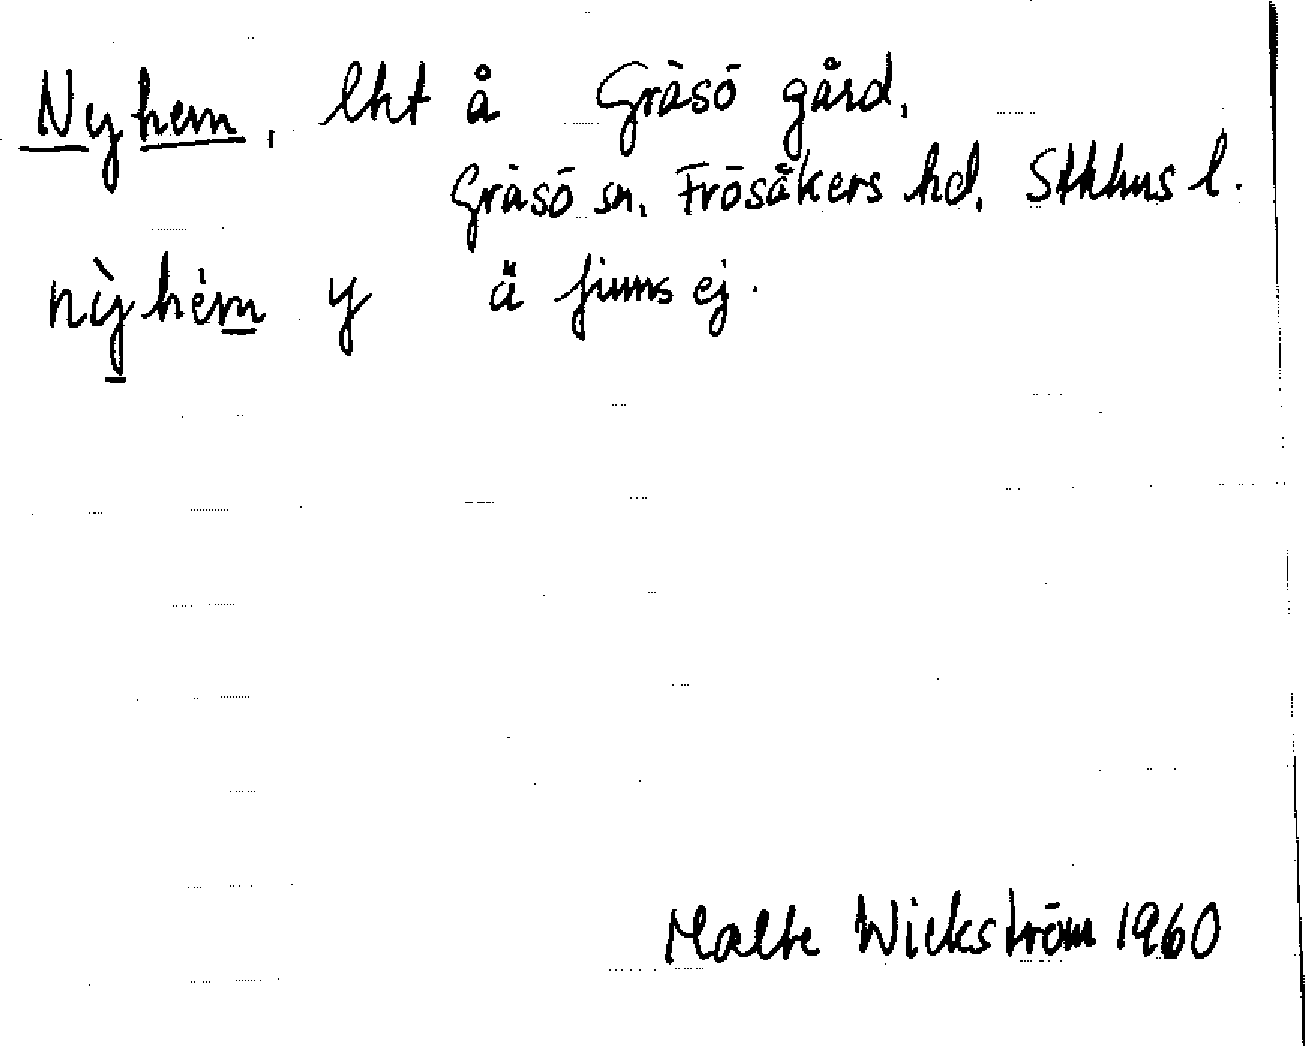 Nyhem, lht å Gräsö gård,
Gräsö sn. Frösåkers hd. Sthlms l.
nỳhém y ä finns ej.
Malte Wickström 1960